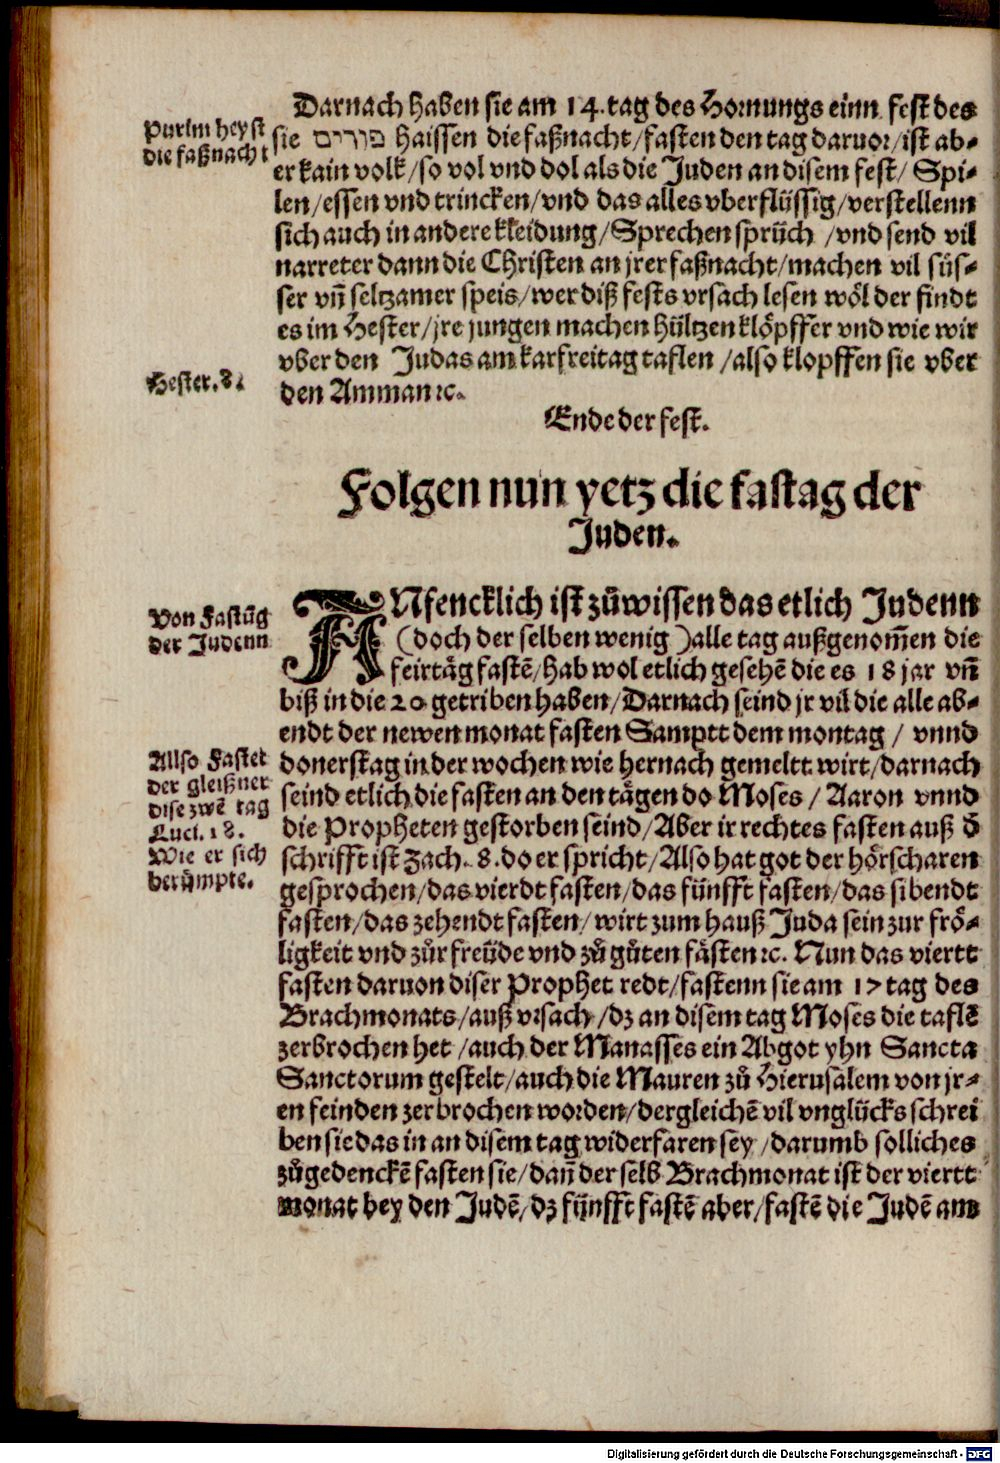 Darnach haben sie am 14. tag des Hornungs einn fest des
Purim heyst
die faßnacht
sie פורים haissen die faßnacht/fasten den tag daruor/ist ab-
er kain volk/so vol vnd dol als die Juden an disem fest/ Spi-
len/essen vnd trincken/vnd das alles vberflüssig/verstellenn
sich auch in andere kleidung/Sprechen sprüch /vnd send vil
narreter dann die Christen an jrer faßnacht/machen vil süs-
ser vñ seltzamer speis/wer diß fests vrsach lesen wöl der findt
es im Hester/jre jungen machen hültzen klöpffer vnd wie wir
vber den Judas am karfreitag taflen /also klopffen sie vber
Hester. 8.
den Amman ꝛc.
Ende der fest.
Folgen nun yetz die fastag der
Juden.
Von Fastũg
der Judenn
ANfencklich ist zů wissen das etlich Judenn
(doch der selben wenig )alle tag außgenom̃en die
feirtäg fastẽ/hab wol etlich gesehẽ die es 18 jar vñ
biß in die 20 getriben haben/Darnach seind jr vil die alle ab-
endt der newen monat fasten Samptt dem montag / vnnd
Allso Fastet
der gleißner
dise zwẽ tag
Luci. 18.
Wie er sich
berümpte.
donerstag in der wochen wie hernach gemeltt wirt/darnach
seind etlich die fasten an den tägen do Moses / Aaron vnnd
die Propheten gestorben seind/Aber ir rechtes fasten auß d̄
schrifft ist Zach. 8. do er spricht/Also hat got der hörscharen
gesprochen/das vierdt fasten/das fünfft fasten/das sibendt
fasten/das zehendt fasten/wirt zum hauß Juda sein zur frö-
ligkeit vnd zůr freüde vnd zů gůten fästen ꝛc. Nun das viertt
fasten daruon diser Prophet redt/fastenn sie am 17 tag des
Brachmonats/auß vrsach/dz an disem tag Moses die taflẽ
zerbrochen het /auch der Manasses ein Abgot yhn Sancta
Sanctorum gestelt/auch die Mauren zů Hierusalem von jr-
en feinden zerbrochen worden/dergleichẽ vil vnglücks schrei
ben sie das in an disem tag widerfaren sey /darumb solliches
zůgedenckẽ fasten sie/dañ der selb Brachmonat ist der viertt
monat bey den Judẽ/dz fünfft fastẽ aber/fastẽ die Judẽ am
Digitalisierung gefördert durch die Deutsche Forschungsgemeinschaft - DFG